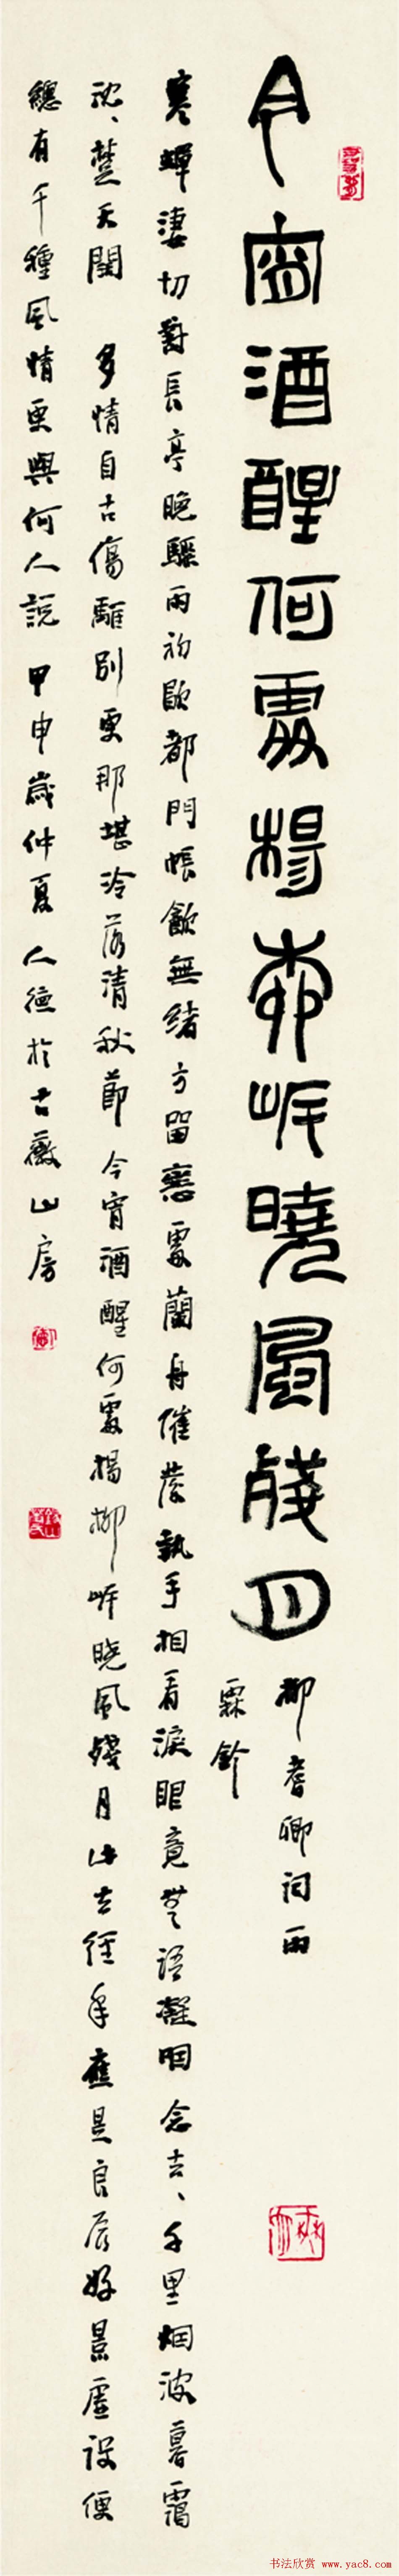 今宵酒醒何處楊柳岸曉風殘月
柳耆卿詞雨
霖鈴
寒蟬淒切對長亭晚驟雨初歇都門帳飲無緒方留戀處蘭舟催發執手相看淚眼竟無語凝咽念去、千里烟波暮靄
沈、楚天闊 多情自古傷離別更那堪冷落清秋節 今宵酒醒何處楊柳岸晓風殘月此去經年應是良辰好景虛設便
總有千種風情更與何人說 甲申歲仲夏 人德於古薇山房
书法欣赏 www.yac8.com